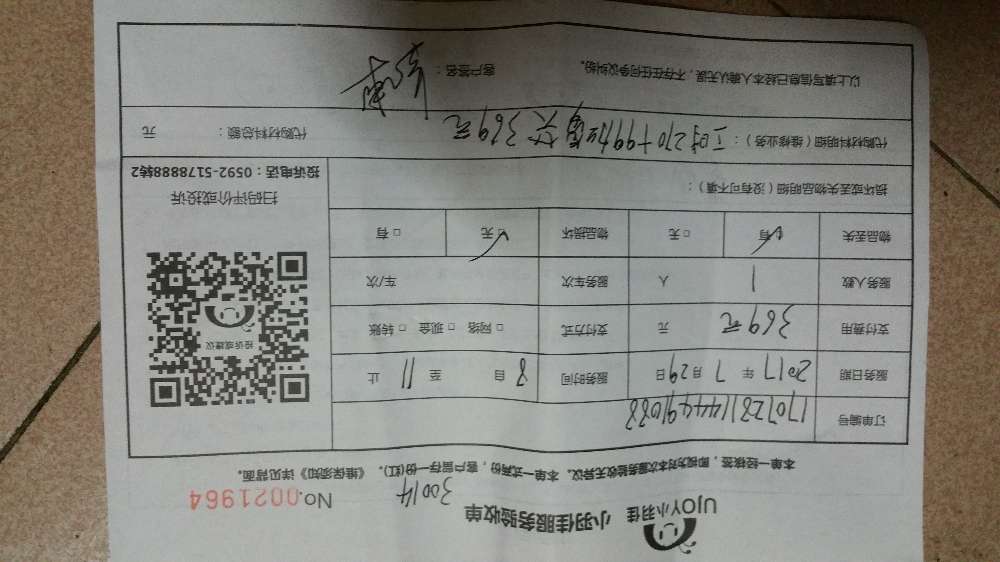 UJOY小羽佳 小羽佳服务验收单
30014
No.0021964
本单一经核签，即视为对本次服务验收无异议。本单一式两份，客户留存一份(红)。《维保须知》详见背面。
订单编号 1707281444491088
服务日期 2017 年 7 月 29 日 服务时间 自 8 至 11 止
支付费用 369元 元 支付方式 □ 网络 □ 现金 □ 转账
服务人数 1 人 服务车次 车/次
物品丢失 □ 有 □ 无 物品损坏 □ 无 □ 有
损坏或丢失物品明细（没有可不填）：
投诉或建议
扫码评价或投诉
投诉电话：0592-5178888转2
代购材料明细（维修业务）：工时270+99加 共369元
代购材料总额： 元
以上填写信息已经本人确认无误，不存在任何争议纠纷。
客户签名：